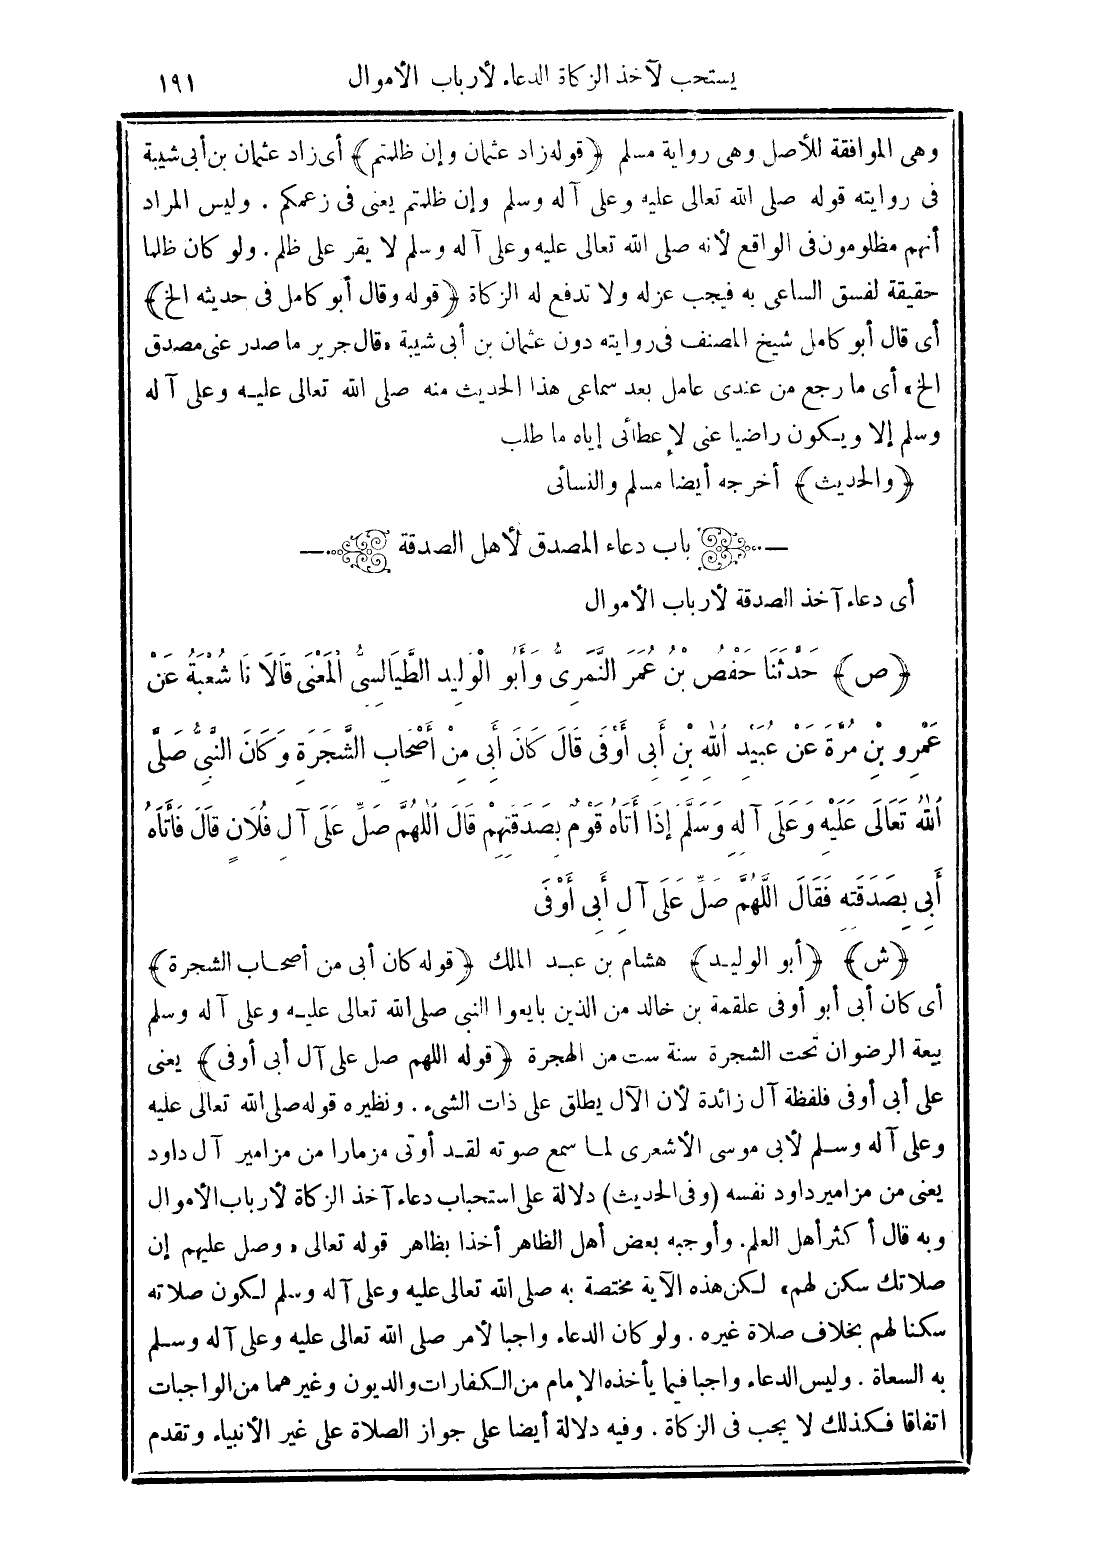 يستحب لآخذ الزكاة الدعاء لأرباب الأموال ١٩١
وهى الموافقة للأصل وهى رواية مسلم ﴿قوله زاد عثمان وإن ظلمتم﴾ أى زاد عثمان بن أبى شيبة
فى روايته قوله صلى الله تعالى عليه وعلى آله وسلم وإن ظلمتم يعنى فى زعمكم . وليس المراد
أنهم مظلومون فى الواقع لأنه صلى الله تعالى عليه وعلى آله وسلم لا يقر على ظلم . ولو كان ظالما
حقيقة لفسق الساعى به فيجب عزله ولا تدفع له الزكاة ﴿قوله وقال أبو كامل فى حديثه الخ﴾
أى قال أبو كامل شيخ المصنف فى روايته دون عثمان بن أبى شيبة «قال جرير ما صدر عنى مصدق
الخ» أى ما رجع من عندى عامل بعد سماعى هذا الحديث منه صلى الله تعالى عليه وعلى آله
وسلم إلا ويكون راضيا عنى لإعطائى إياه ما طلب
﴿والحديث﴾ أخرجه أيضا مسلم والنسائى
باب دعاء المصدق لأهل الصدقة
أى دعاء آخذ الصدقة لأرباب الأموال
﴿ص﴾ حَدَّثَنَا حَفْصُ بْنُ عُمَرَ النَّمَرِىُّ وَأَبُو الْوَلِيدِ الطَّيَالِسِىُّ الْمَعْنَى قَالَا نَا شُعْبَةُ عَنْ
عَمْرِو بْنِ مُرَّةَ عَنْ عُبَيْدِ اللهِ بْنِ أَبِى أَوْفَى قَالَ كَانَ أَبِى مِنْ أَصْحَابِ الشَّجَرَةِ وَكَانَ النَّبِىُّ صَلَّى
اللهُ تَعَالَى عَلَيْهِ وَعَلَى آلِهِ وَسَلَّمَ إِذَا أَتَاهُ قَوْمٌ بِصَدَقَتِهِمْ قَالَ اللهُمَّ صَلِّ عَلَى آلِ فُلَانٍ قَالَ فَأَتَاهُ
أَبِى بِصَدَقَتِهِ فَقَالَ اللَّهُمَّ صَلِّ عَلَى آلِ أَبِى أَوْفَى
﴿ش﴾ ﴿أبو الوليد﴾ هشام بن عبد الملك ﴿قوله كان أبى من أصحاب الشجرة﴾
أى كان أبى أبو أوفى علقمة بن خالد من الذين بايعوا النبى صلى الله تعالى عليه وعلى آله وسلم
بيعة الرضوان تحت الشجرة سنة ست من الهجرة ﴿قوله اللهم صل على آل أبى أوفى﴾ يعنى
على أبى أوفى فلفظة آل زائدة لأن الآل يطلق على ذات الشىء . ونظيره قوله صلى الله تعالى عليه
وعلى آله وسلم لأبى موسى الأشعرى لما سمع صوته لقد أوتى مزمارا من مزامير آل داود
يعنى من مزامير داود نفسه (وفى الحديث) دلالة على استحباب دعاء آخذ الزكاة لأرباب الأموال
وبه قال أكثر أهل العلم. وأوجبه بعض أهل الظاهر أخذا بظاهر قوله تعالى «وصل عليهم إن
صلاتك سكن لهم» لكن هذه الآية مختصة به صلى الله تعالى عليه وعلى آله وسلم لكون صلاته
سكنا لهم بخلاف صلاة غيره . ولو كان الدعاء واجبا لأمر صلى الله تعالى عليه وعلى آله وسلم
به السعاة . وليس الدعاء واجبا فيما يأخذه الإمام من الكفارات والديون وغيرهما من الواجبات
اتفاقا فكذلك لا يجب فى الزكاة . وفيه دلالة أيضا على جواز الصلاة على غير الأنبياء وتقدم